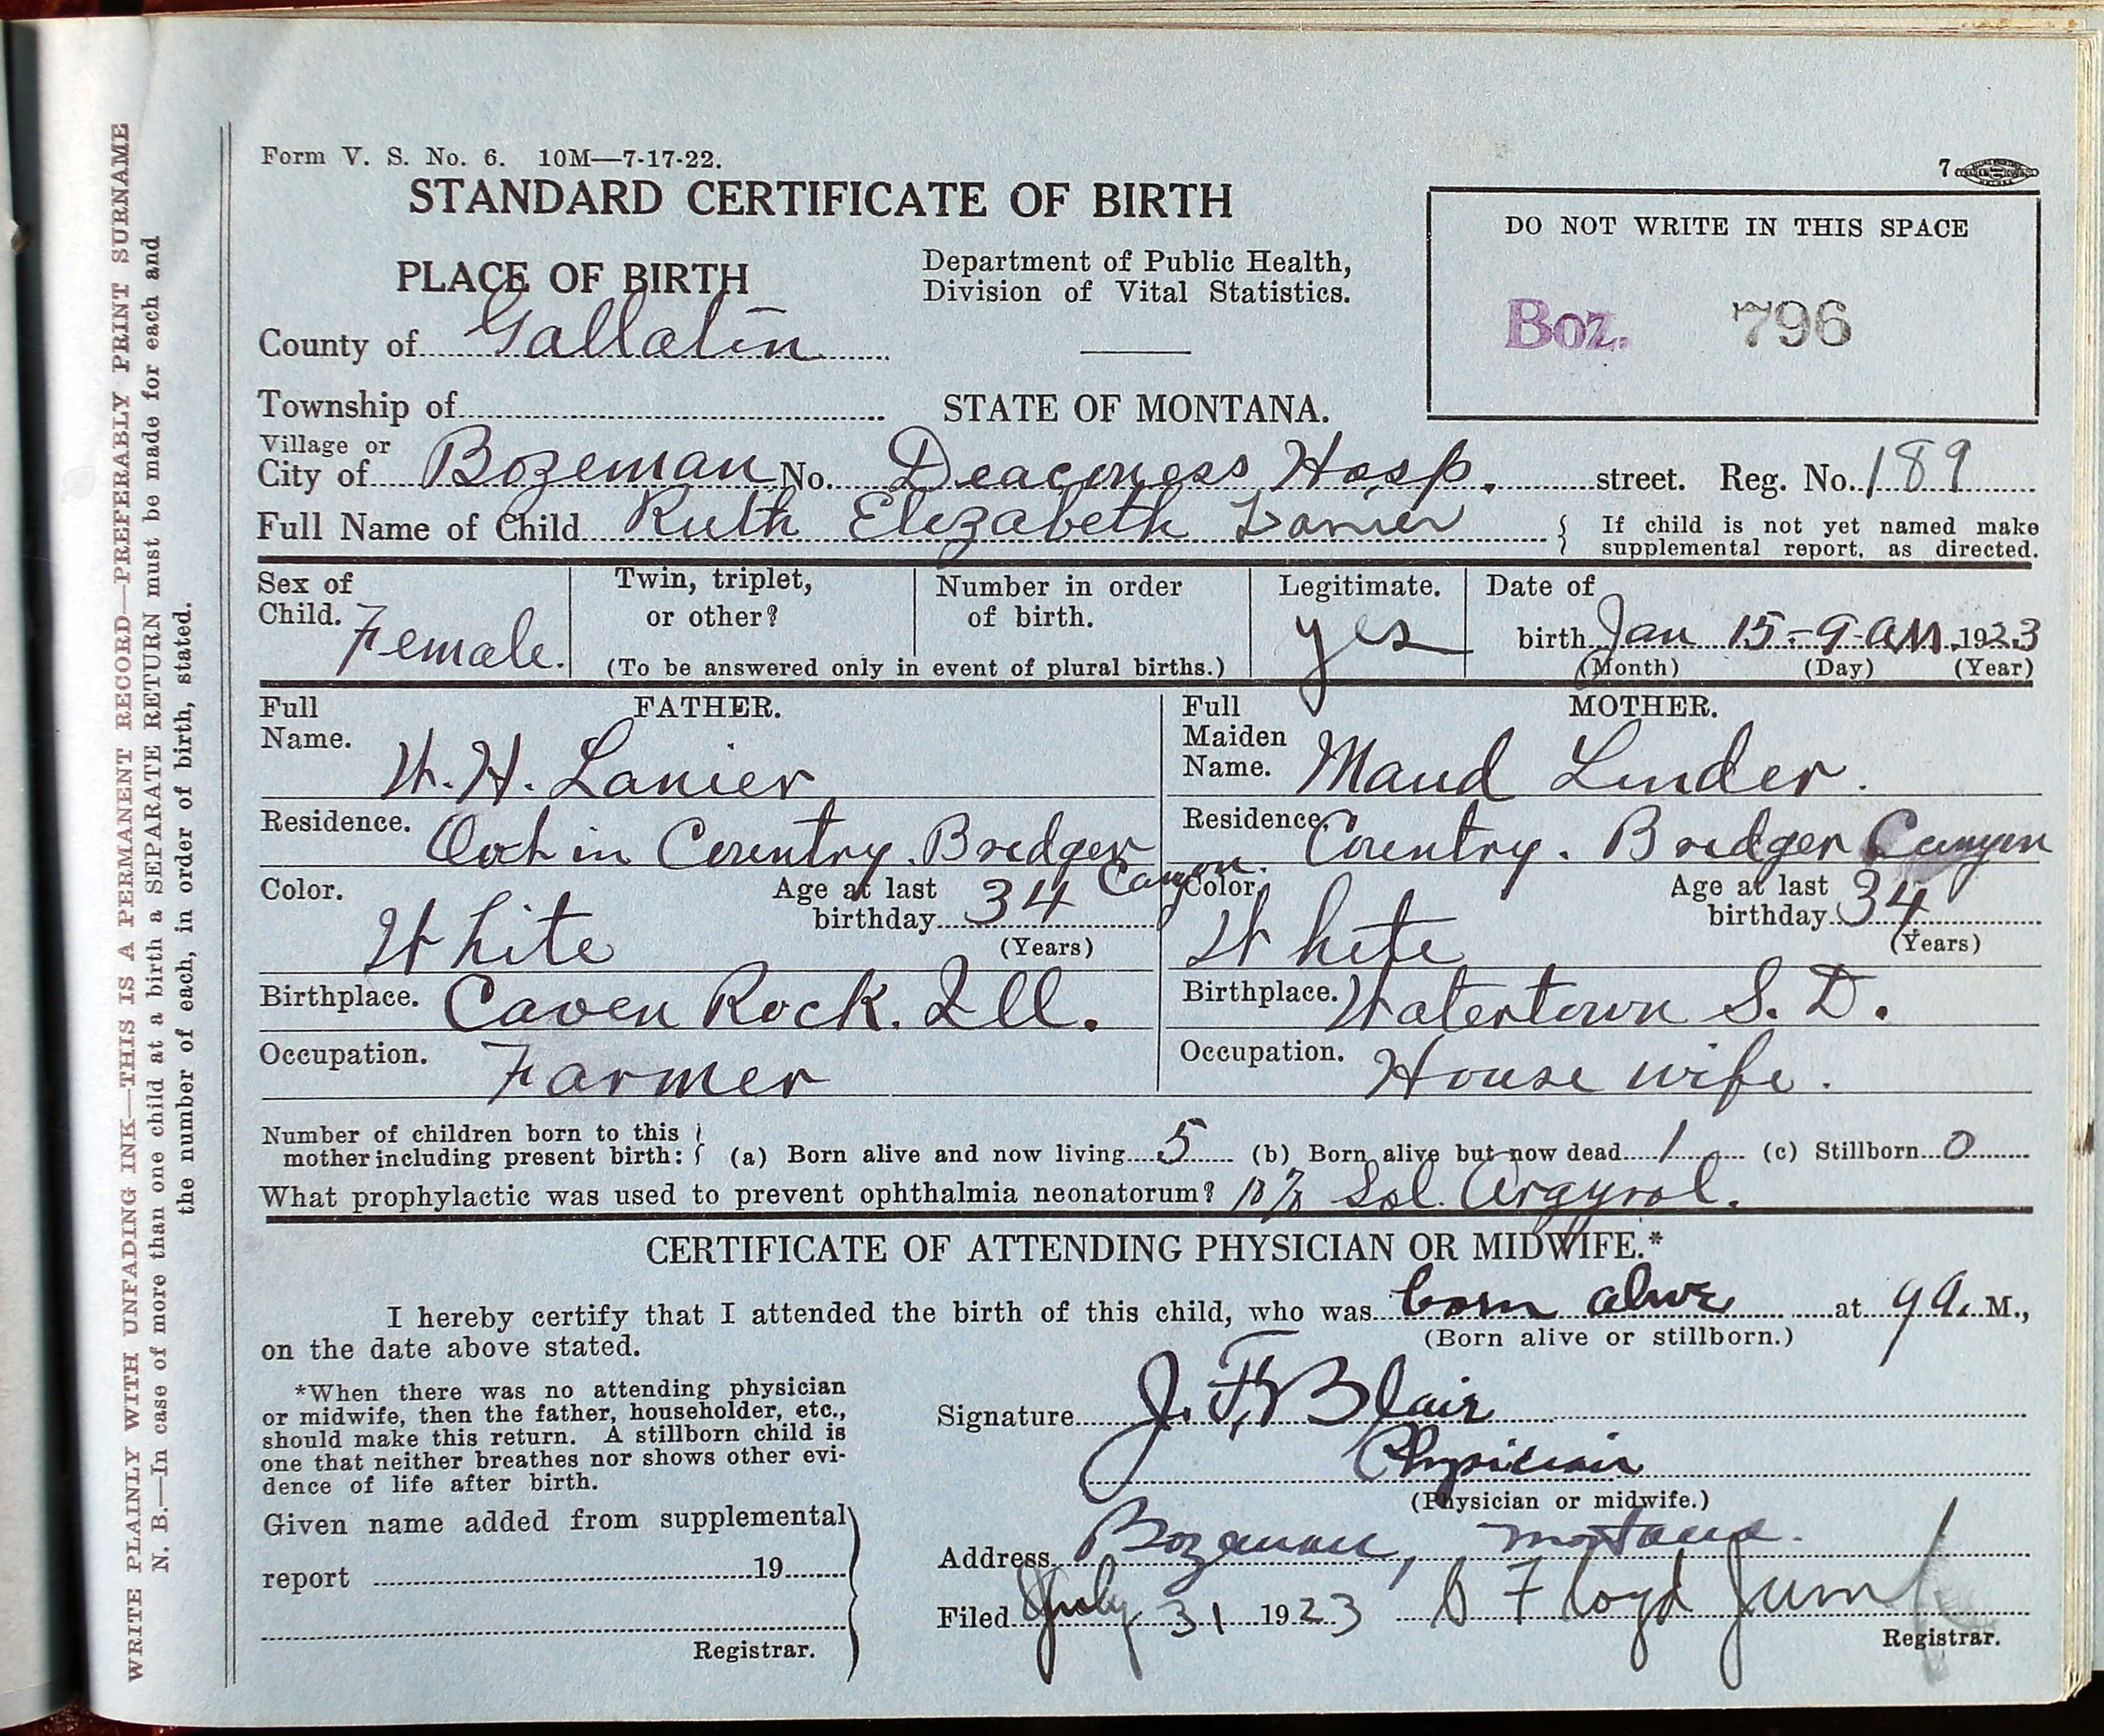 Form V. S. No. 6. 10M—7-17-22.
7
STANDARD CERTIFICATE OF BIRTH
DO NOT WRITE IN THIS SPACE
Boz. 796
PLACE OF BIRTH
Department of Public Health,
Division of Vital Statistics.
County of Gallatin
Township of
STATE OF MONTANA.
Village or
City of Bozeman No. Deaconess Hosp. street. Reg. No. 189
Full Name of Child Ruth Elizabeth Lanier
{ If child is not yet named make
supplemental report, as directed.
Sex of
Child. Female.
Twin, triplet,
or other?
Number in order
of birth.
(To be answered only in event of plural births.)
Legitimate.
yes
Date of
birth Jan 15-9-AM. 1923
(Month) (Day) (Year)
FATHER.
Full
Name. W. H. Lanier
Residence. in Country. Bridger
Canyon.
Color. White
Age at last
birthday 34
(Years)
Birthplace. Caven Rock. Ill.
Occupation. Farmer
MOTHER.
Full
Maiden
Name. Maud Linder.
Residence. Country. Bridger Canyon
Color. White
Age at last
birthday 34
(Years)
Birthplace. Watertown S. D.
Occupation. House wife.
Number of children born to this
mother including present birth: } (a) Born alive and now living 5 (b) Born alive but now dead 1 (c) Stillborn 0
What prophylactic was used to prevent ophthalmia neonatorum? 10% Sol. Argyrol.
CERTIFICATE OF ATTENDING PHYSICIAN OR MIDWIFE.*
I hereby certify that I attended the birth of this child, who was born alive at 9 a. M.,
(Born alive or stillborn.)
on the date above stated.
*When there was no attending physician
or midwife, then the father, householder, etc.,
should make this return. A stillborn child is
one that neither breathes nor shows other evi-
dence of life after birth.
Signature J. F. Blair
Physician
(Physician or midwife.)
Given name added from supplemental
report 19
Registrar.
Address Bozeman, Montana.
Filed July 31 1923 Floyd
Registrar.
WRITE PLAINLY WITH UNFADING INK—THIS IS A PERMANENT RECORD—PREFERABLY PRINT SURNAME
N. B.—In case of more than one child at a birth a SEPARATE RETURN must be made for each and
the number of each, in order of birth, stated.